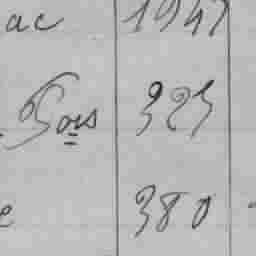 ac 1947
Gois 323
e 380